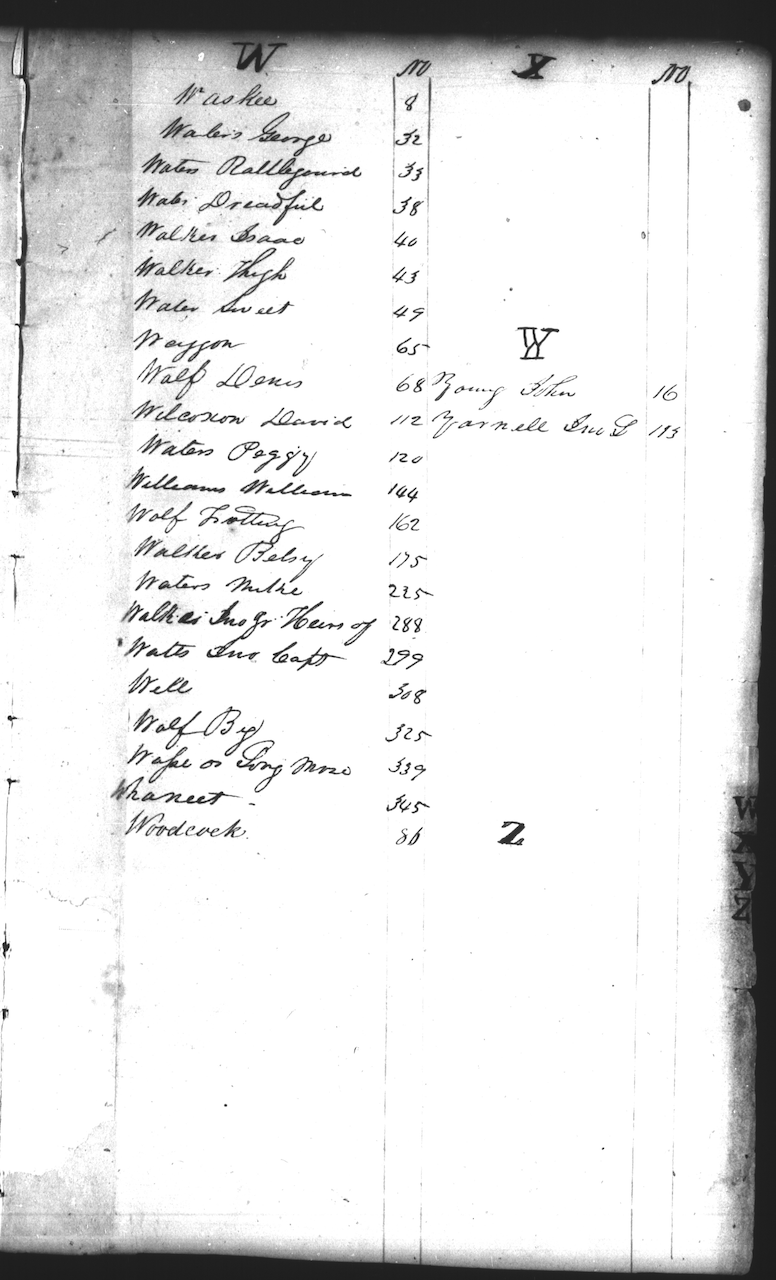 W No
Waskee 8
Waters George 32
Waters Rattlegourd 33
Water Dreadful 38
Walker Isaac 40
Walker Thigh 43
Water Sweet 49
Waggon 65
Wolf Denis 68
Wilcoxon David 112
Waters Peggy 120
Williams William 144
Wolf Trotting 162
Walker Betsy 175
Waters Mike 225
Walker Jno Jr Heirs of 288
Watts Jno Capt 299
Well 308
Wolf Big 325
Wasse or 339
345
Woodcock 86
X No
Y
Young John 16
Yarnell Jno S 193
Z
W
X
Y
Z